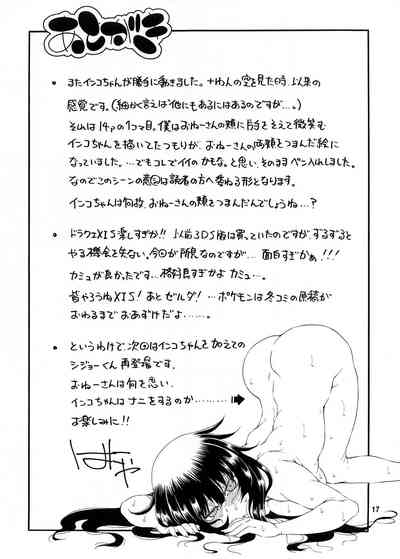 あとがき
またインコちゃんが勝手に動きました。十わんの空を見た時以来の
感覚です。(細かく言えば他にもあるにはあるのですが…。)
それは14Pの1コマ目。僕はおねーさんの頬に片手をそえて微笑む
インコちゃんを描いてたつもりが、おねーさんの両頬をつまんだ絵に
なっていました。…でもコレでイイのかもな。と思い、そのままペン入れしました。
なのでこのシーンの意図は読者の方へ委ねる形となります。
インコちゃんは何故、おねーさんの頬をつまんだんでしょうね…?
ドラクエXIS楽しすぎか!! 以前3DS版は買っていたのですが、ずるずると
やる機会を失い、今回が所見なのですが… 面白すぎかぁ!!!
カミュが良かったです… 格好良すぎかよ カミュ…。
皆やろうねXIS! あと ゼルダ! …ポケモンは冬コミの原稿が
おわるまでおあずけだよ……。
というわけで、次回はインコちゃんを加えての
シジョーくん再登場です。
おねーさんは何を思い、
インコちゃんはナニをするのか…………
お楽しみに!!
17